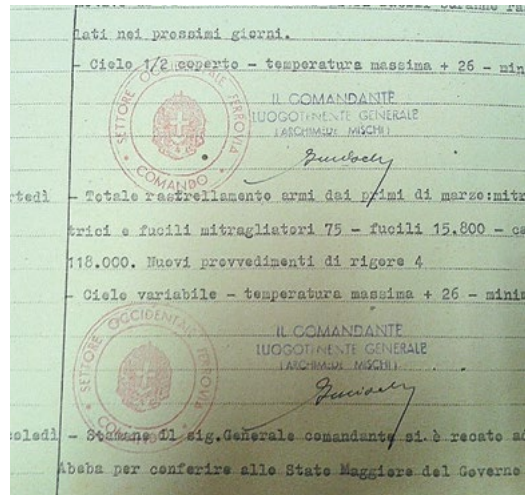 lati nei prossimi giorni.
- Cielo 1/2 coperto - temperatura massima + 26 - min
SETTORE OCCIDENTALE FERROVIA
COMANDO
IL COMANDANTE
LUOGOTENENTE GENERALE
(ARCHIMEDE MISCHI)
rtedì - Totale rastrellamento armi dai primi di marzo:mitr
trici e fucili mitragliatori 75 - fucili 15.800 - ca
118.000. Nuovi provvedimenti di rigore 4
- Cielo variabile - temperatura massima + 26 - minim
SETTORE OCCIDENTALE FERROVIA
COMANDO
IL COMANDANTE
LUOGOTENENTE GENERALE
(ARCHIMEDE MISCHI)
coledì - Stamane il sig.Generale comandante si è recato ad
Abeba per conferire allo Stato Maggiore del Governo